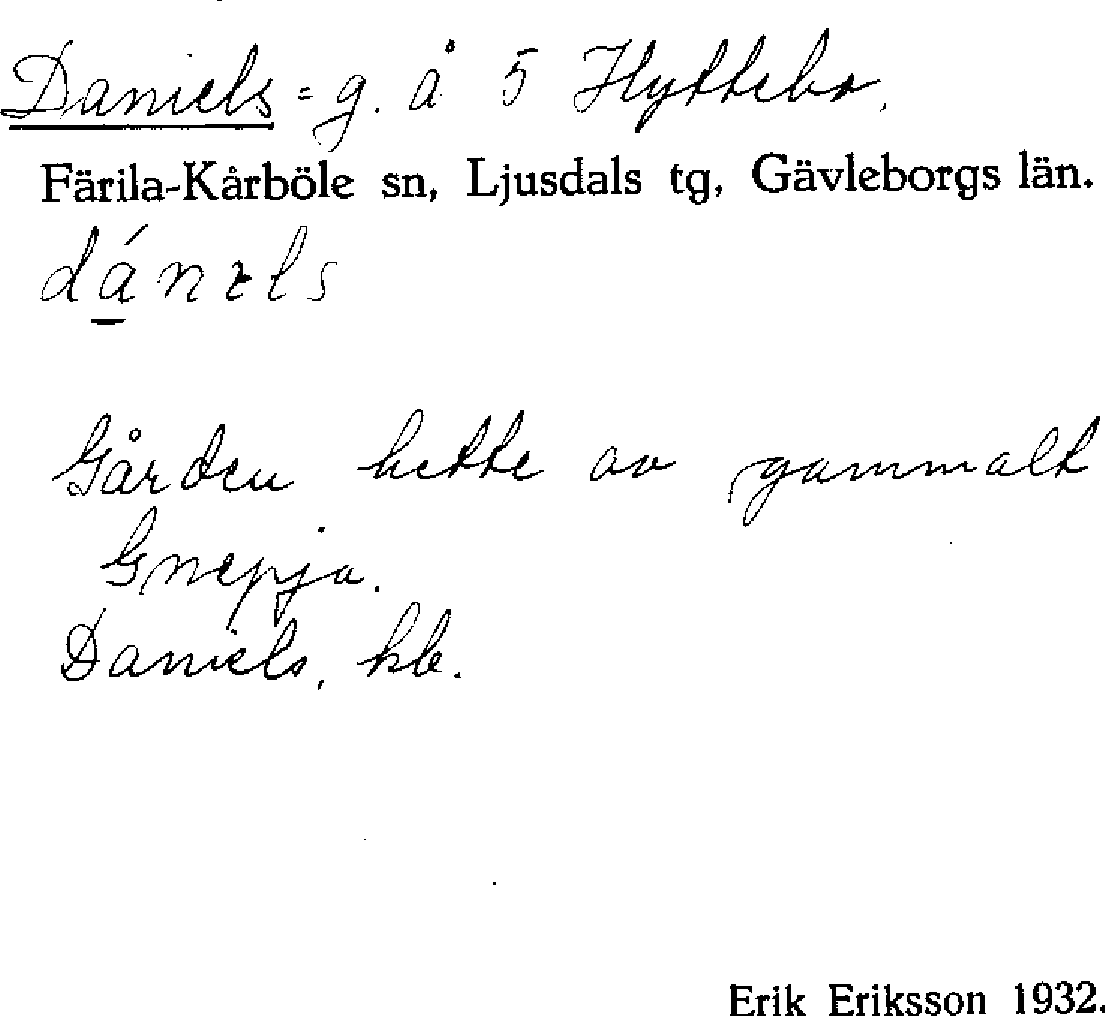 Daniels = g. å 5 Hyttebo.
Färila-Kårböle sn, Ljusdals tg, Gävleborgs län.
dánɛls
Gården hette av gammalt
Gnepja.
Daniels, kb.
Erik Eriksson 1932.